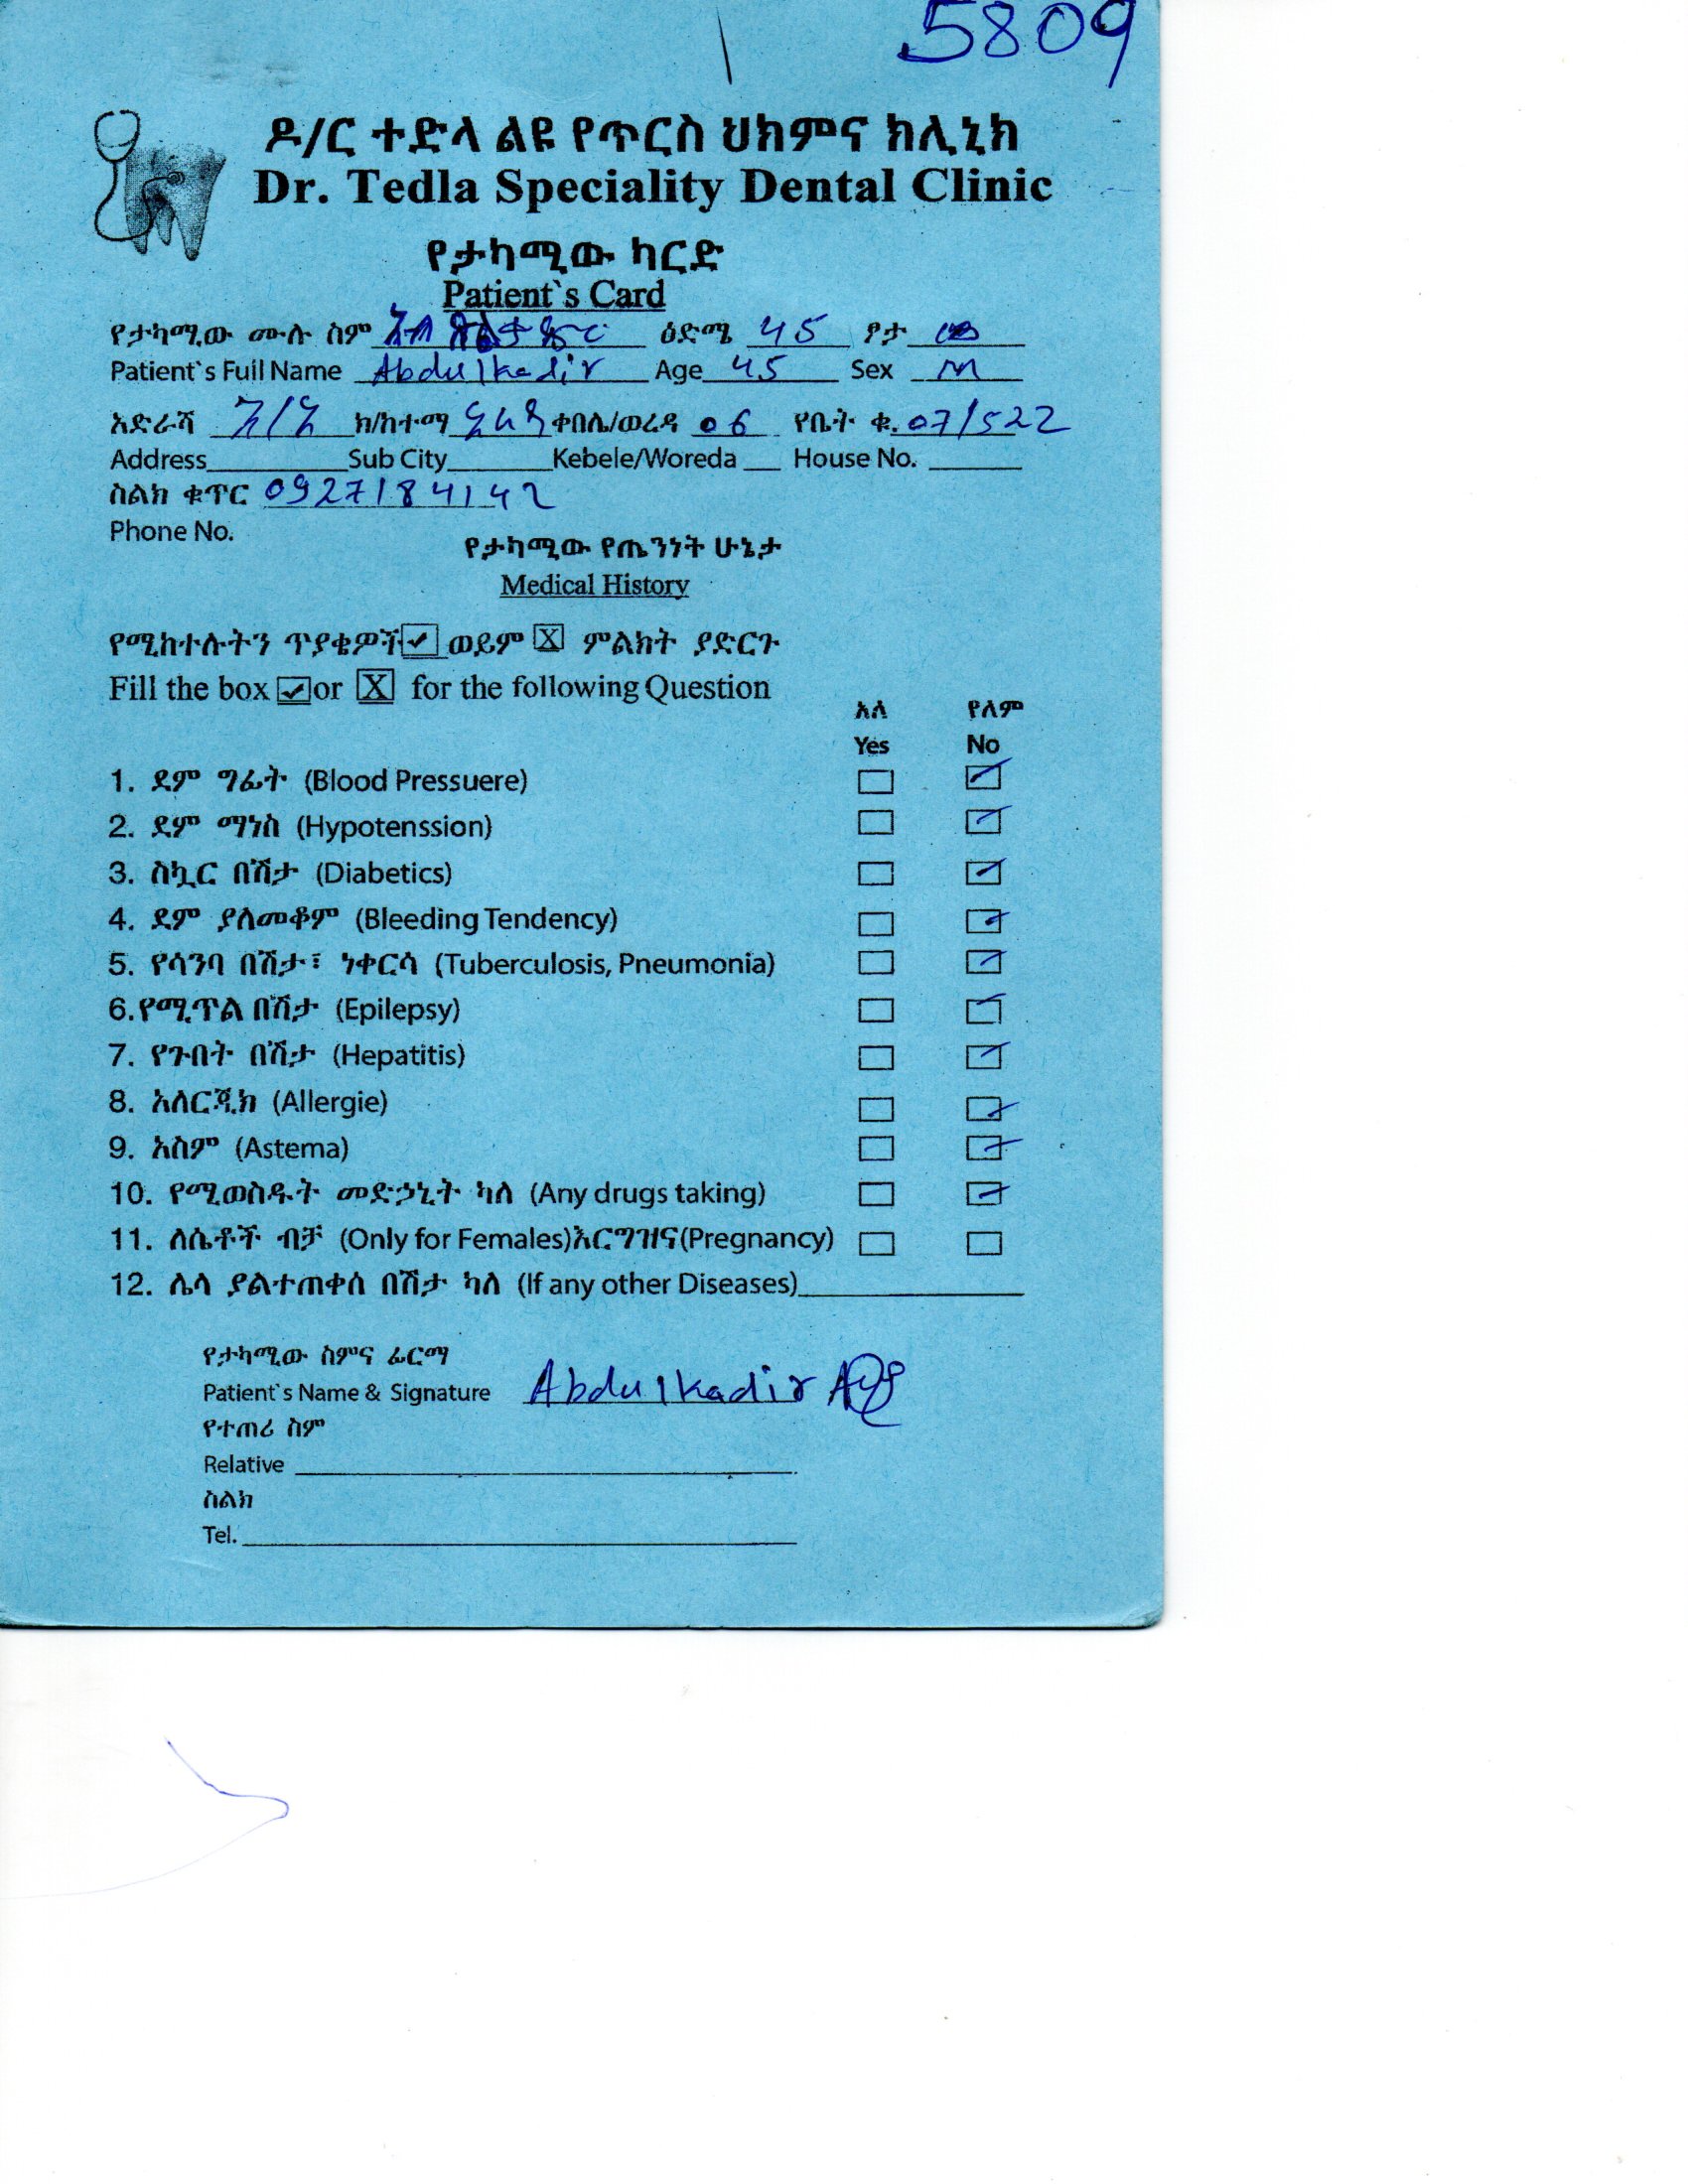 5809
ዶ/ር ተድላ ልዩ የጥርስ ህክምና ክሊኒክ
Dr. Tedla Speciality Dental Clinic
የታካሚው ካርድ
Patient`s Card
የታካሚው ሙሉ ስም ዕድሜ 45 ፆታ
Patient`s Full Name Abdulkadir Age 45 Sex M
አድራሻ ክ/ከተማ ቀበሌ/ወረዳ 06 የቤት ቁ. 07/522
Address Sub City Kebele/Woreda House No.
ስልክ ቁጥር 0927184142
Phone No.
የታካሚው የጤንነት ሁኔታ
Medical History
የሚከተሉትን ጥያቄዎች ✓ ወይም X ምልክት ያድርጉ
Fill the box ✓ or X for the following Question
አለ የለም
Yes No
1. ደም ግፊት (Blood Pressuere)
2. ደም ማነስ (Hypotenssion)
3. ስኳር በሽታ (Diabetics)
4. ደም ያለመቆም (Bleeding Tendency)
5. የሳንባ በሽታ፣ ነቀርሳ (Tuberculosis, Pneumonia)
6.የሚጥል በሽታ (Epilepsy)
7. የጉበት በሽታ (Hepatitis)
8. አለርጂክ (Allergie)
9. አስም (Astema)
10. የሚወስዱት መድኃኒት ካለ (Any drugs taking)
11. ለሴቶች ብቻ (Only for Females)እርግዝና(Pregnancy)
12. ሌላ ያልተጠቀሰ በሽታ ካለ (If any other Diseases)
የታካሚው ስምና ፊርማ
Patient`s Name & Signature Abdulkadir
የተጠሪ ስም
Relative
ስልክ
Tel.